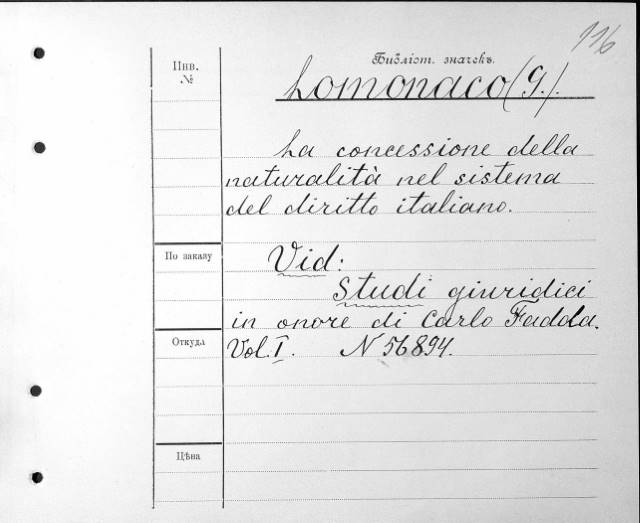 116
Библіот. значекъ.
Инв.
№
Lomonaco (G.).
La concessione della
naturalità nel sistema
del diritto italiano.
По заказу
Vid:
Studi giuridici
in onore di Carlo Fadda.
Откуда
Vol. I. N 56894.
Цѣна